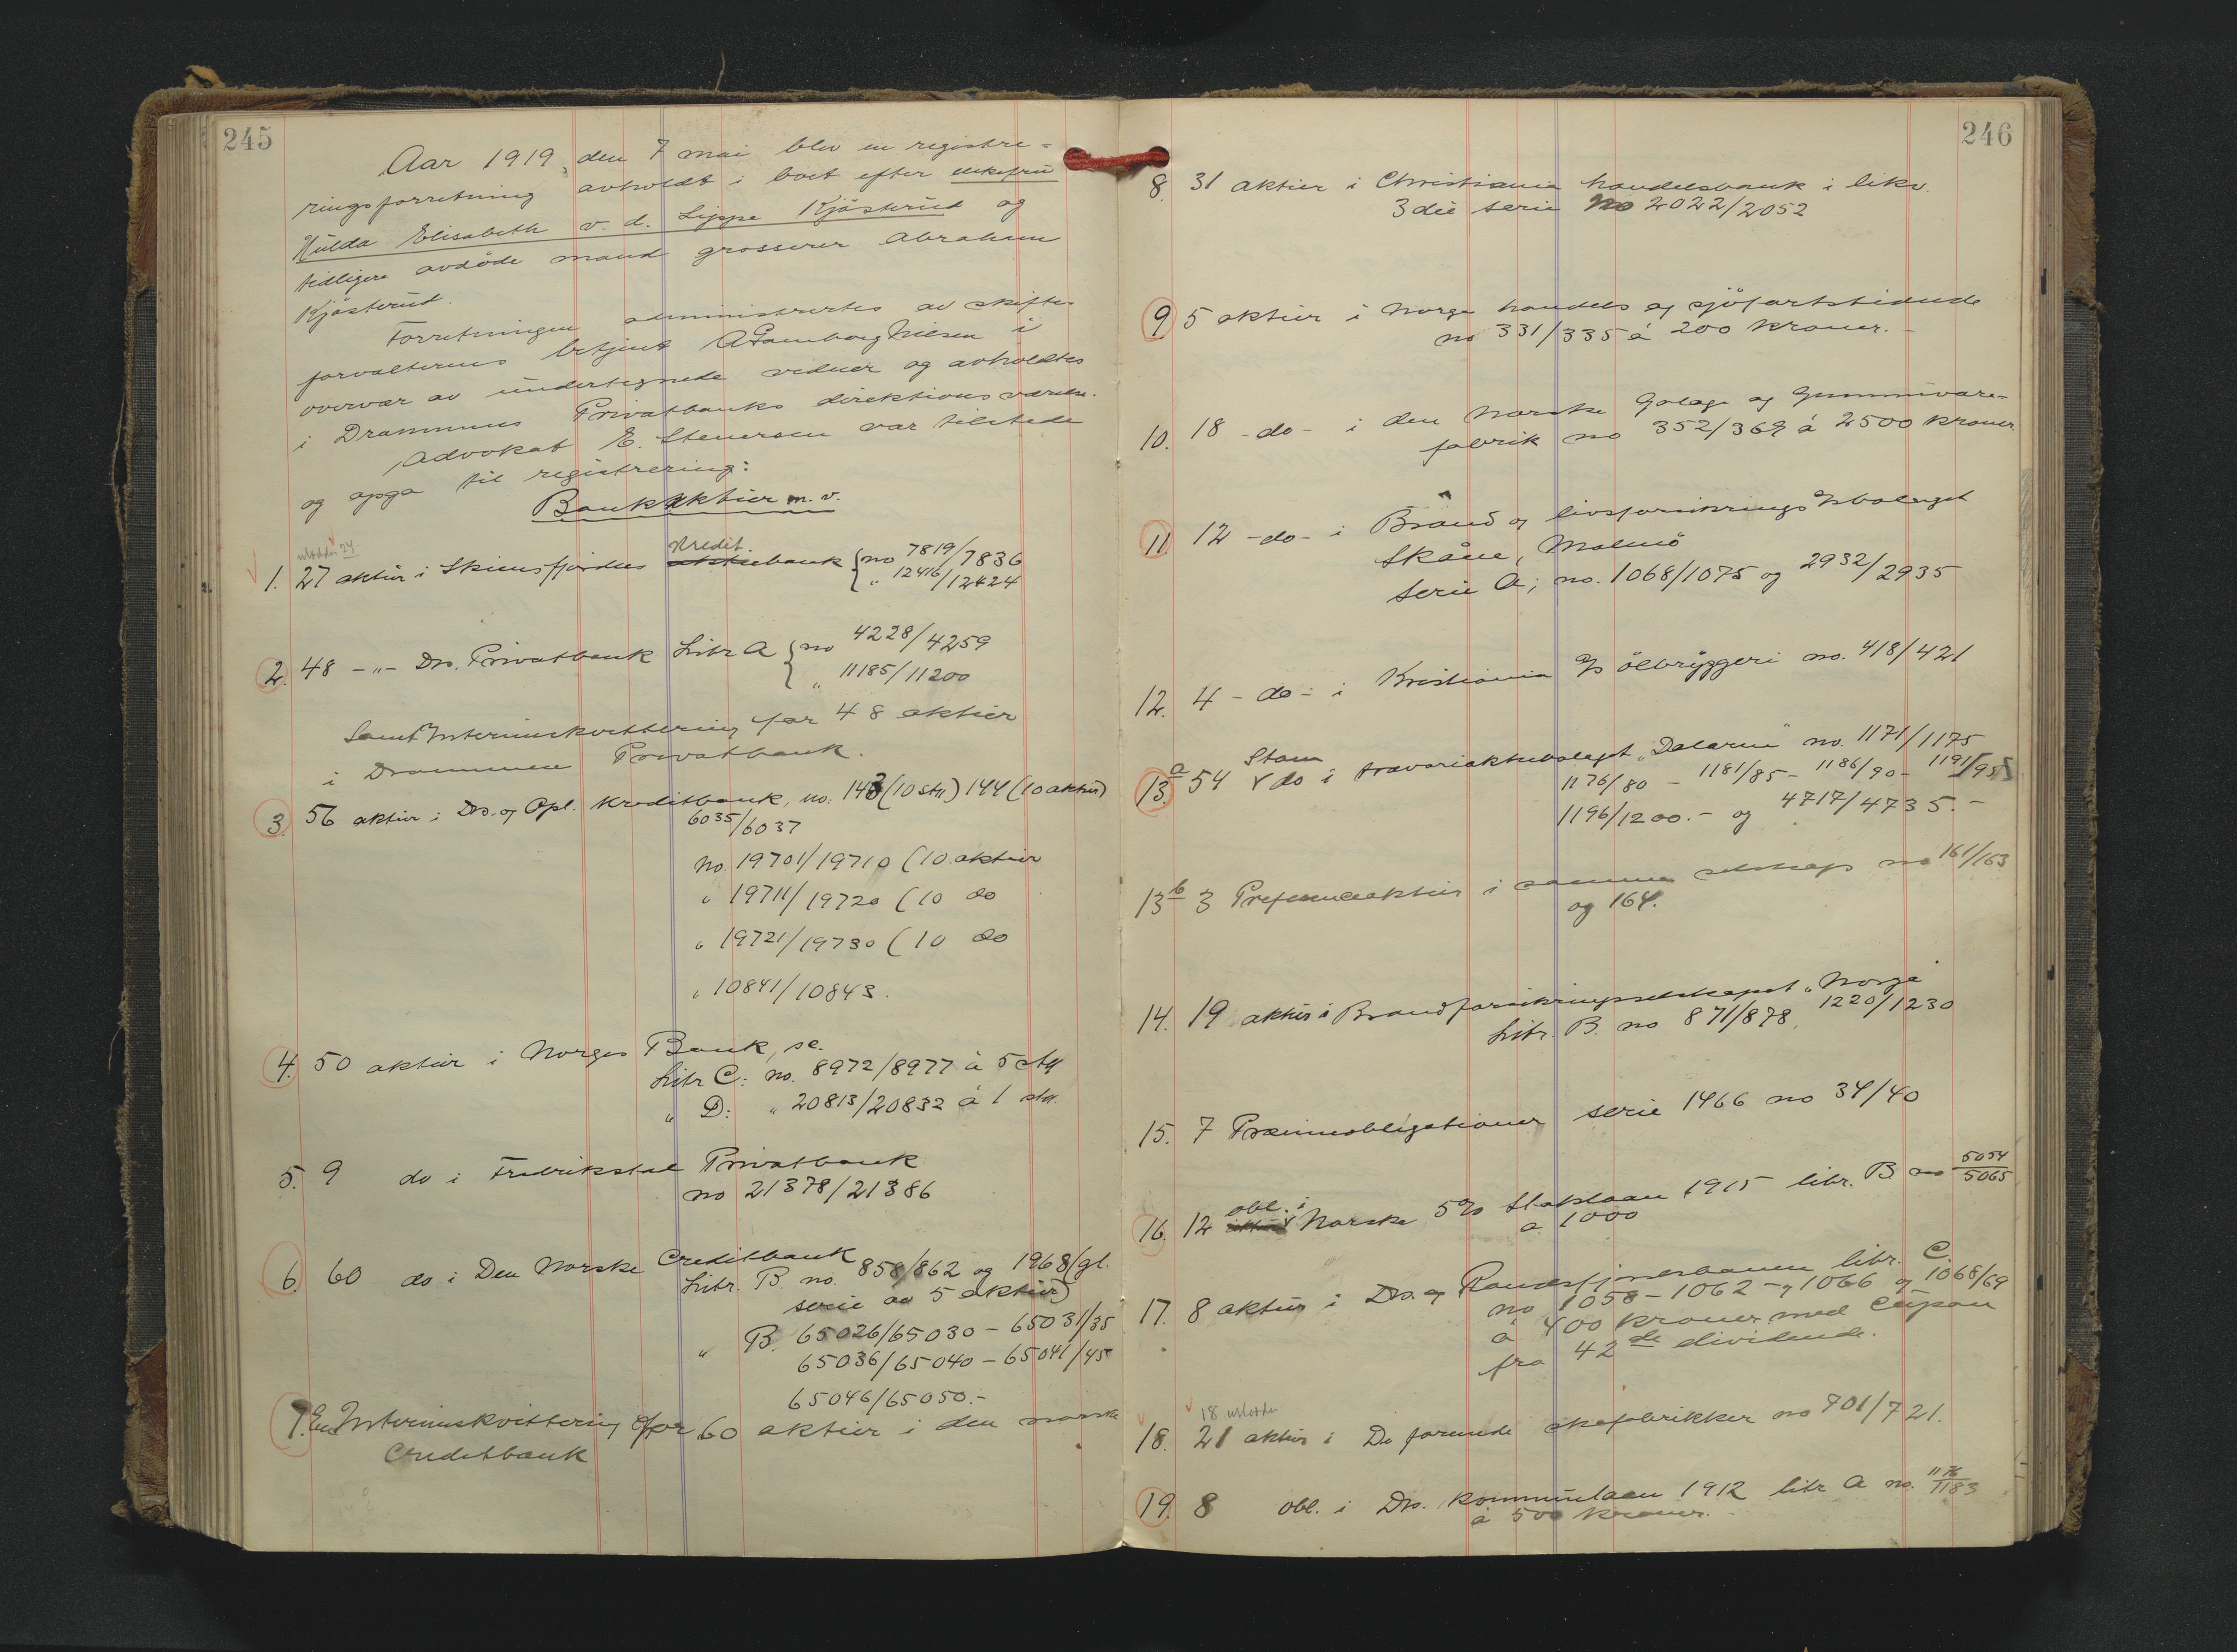 245
Aar 1919, den 7 mai blev en registre-
ringsforretning avholdt i boet efter enkefru
Hulda Elisabeth v. d. Lippe Kjösterud og
tidligere avdöde mand grosserer Abraham
Kjösterud.
Forretningen administrertes av skifte-
forvalterens betjent A Tamborg Nilsen i
overvær av undertegnede vidner og avholdtes
i Drammens Privatbanks direktionsværelse.
Advokat E. Stenersen var tilstede
og opga til registrering:
Bankaktier m. v.
utloddn 24.
Kredit
1. 27 aktier i Skiensfjordens aktiebank no 7819/7836
" 12416/12424
2. 48 -"- Dr. Privatbank Litr A no 4228/4259
" 11185/11200
Samt Interimskvittering for 48 aktier
i Drammens Privatbank.
3. 56 aktier i Dr. og Opl. Kreditbank, no. 143 (10 stk) 144 (10 aktier)
6035/6037
No. 19701/19710 (10 aktier
" 19711/19720 (10 do
" 19721/19730 (10 do
" 10841/10843.
4. 50 aktier i Norges Bank, se.
Litr C: no. 8972/8977 à 5 stk
" D: " 20813/20832 à 1 stk.
5. 9 do i Fredrikstad Privatbank
no 21378/21386
6. 60 do i Den Norske Creditbank
Litr. B. no. 858/862 og 1968 (gl.
serie av 5 aktier)
" B. 65026/65030 - 65031/35
65036/65040 - 65041/45
65046/65050.-
7. En Interimskvittering for 60 aktier i den norske
Creditbank
246
8. 31 aktier i Christiania handelsbank i likv.
3die serie No 2022/2052
9 5 aktier i Norges handels og sjöfartstidende
no 331/335 à 200 kroner.-
10. 18 -do- i den Norske Galoge og Gummivare-
fabrik no 352/369 à 2500 kroner.
11. 12 -do- i Brand og livsforsikrings A/sbolaget
Skåne, Malmö
Serie A; no. 1068/1075 og 2932/2935
12. 4 -do- i Kristiania A/s ölbryggeri no. 418/421
Stam
13 a 54 do i travariaktiebolaget "Dalarne" no. 1171/1175
1176/80 - 1181/85 - 1186/90 - 1191/95
1196/1200.- og 4717/4735.-
13 b 3 Preferenceaktier i samme selskap no 161/163
og 164.
14. 19 aktier i Brandforsikringsselskapet "Norge"
Litr. B. no 871/878, 1220/1230
15. 7 Præmieobligationer serie 1466 no 34/40
obl. i
16. 12 Norske 5% Statslaan 1915 litr. B no 5054/5065
a 1000
17. 8 aktier i Dr. og Randsfjordsbanen litr. C.
no 1058 - 1062 - 1066 og 1068/69
à 400 kroner med Cupon
fra 42de dividende.
18 utloddn
18. 21 aktier i De forenede skofabrikker no 701/721.
19. 8 obl. i Dr. kommunelaan 1912 litr A no. 1176/1183
à 500 kroner.